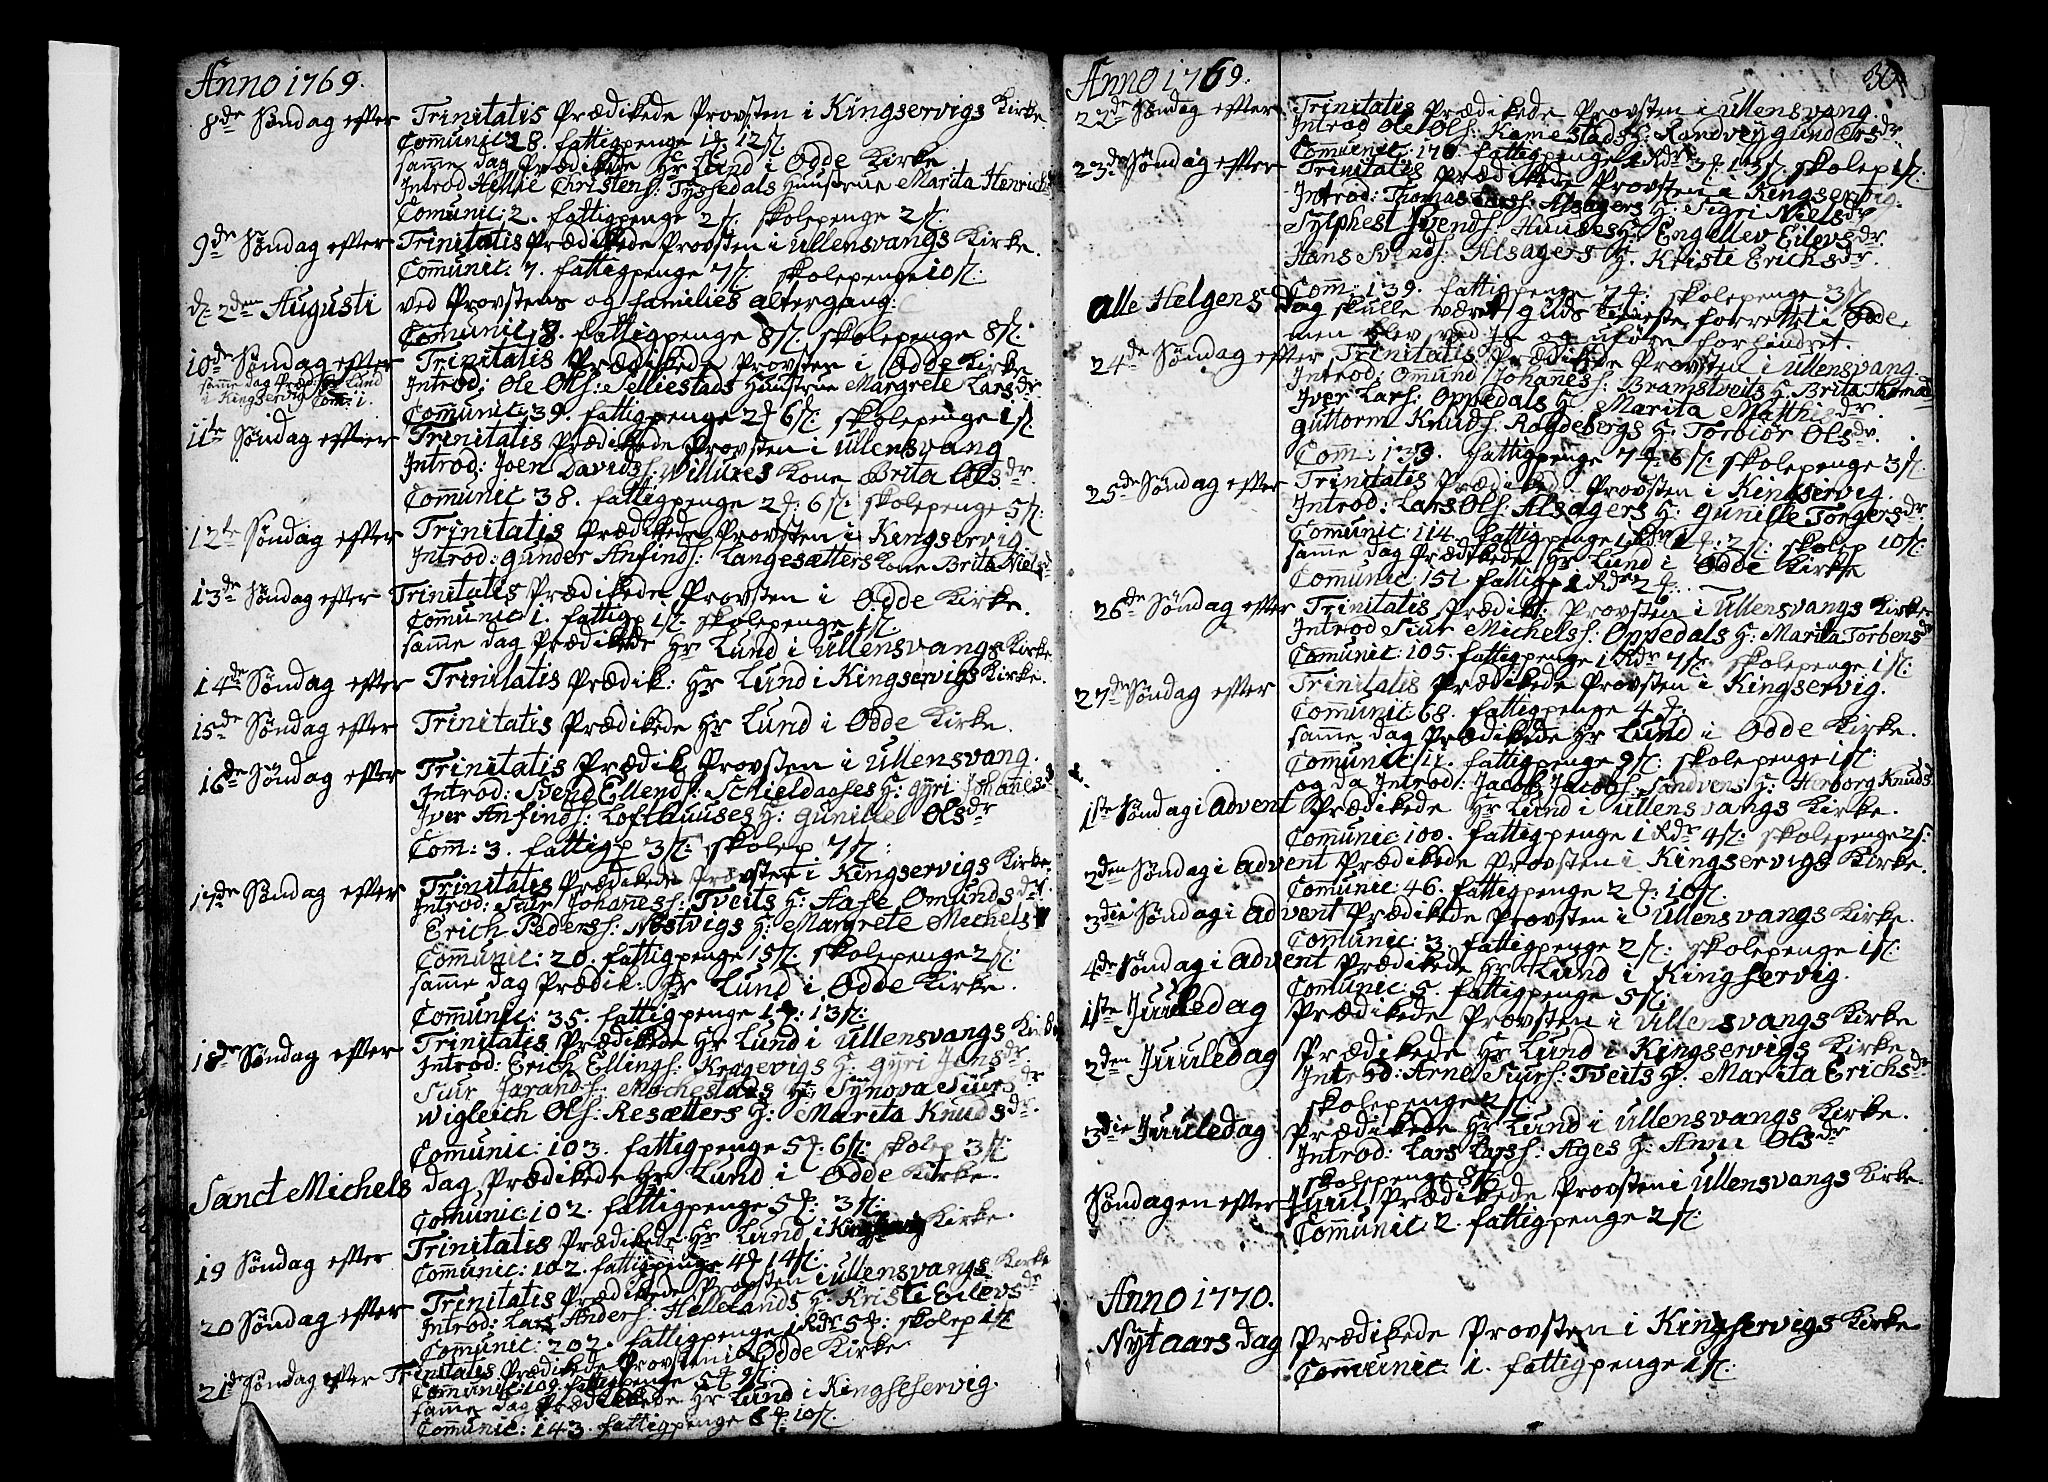 Anno 1769.
8de Søndag efter Trinitatis Prædikede Provsten i Kingservigs Kirke.
Communic 28. fattigpenge 1 12 s:
samme dag Prædikede Hr Lund i Odde Kirke
Introd Christens: Tyssedals Huustrue Marita Henrichs
Comunic: 2. fattigpenge 2 s: skolepenge 2 s:
9de Søndag efter Trinitatis Prædikede Provsten i Ullensvangs Kirke.
Com̄unic: 7. fattigpenge 7 s: skolepenge 10 s:
d: 2den Augusti ved Provstens og families altergang.
Comunic 8. fattigpenge 8 s: skolepenge 8 s:
10de Søndag efter Trinitatis Prædikede Provsten i Odde Kirke
samme dag Præd: Hr Lund
i Kingservig Com: 1.
Introd: Ole Ols: Selliestads Huustrue Margrete Larsdr
Com̄unic: 39. fattigpenge 2 6 s: skolepenge 1 s:
11te Søndag efter Trinitatis Prædikede Provsten i Ullensvang
Introd: Joen Davids: Willures Kone Brita Olsdr.
Com̄unic 38. fattigpenge 2 : 6 s: skolepenge 5 s:
12te Søndag efter Trinitatis Prædikede Provsten i Kingservig
Introd: Gunder Anfinds: Langesætters Kone Brita Nielsd
13de Søndag efter Trinitatis Prædikede Provsten i Odde Kirke.
Com̄unic 1. fattigp 1 s: skolepenge 1 s:
samme dag Prædikede Hr Lund i Ullensvangs Kirke.
14de Søndag efter Trinitatis Prædik: Hr Lund i Kingservigs Kirke.
15de Søndag efter Trinitatis Prædikede Hr Lund i Odde Kirke.
16de Søndag efter Trinitatis Prædik Provsten i Ullensvang.
Introd: Svend Ellends: Schieldaases H: Gyri Johanesd
Iver Anfinds: Lofthuuses H: Gunille Olsdr
Com̄: 3. fattigp 3 s: skolep 7 s:
17de Søndag efter Trinitatis Prædikede Provsten i Kingservigs Kirke
Introd: Siur Johaness: Tveits H: Aase Omundsdr.
Erich Peders s: Nøstvigs H: Margrete Michels
Com̄unic: 20. fattigpenge 15 s: skolepenge 2 s:
samme dag Prædik: Hr Lund i Odde Kirke.
Com̄unic: 35. fattigpenge 1 : 13 s:
18de Søndag efter Trinitatis Prædikede Hr Lund i Ullensvangs Kirke
Introd: Erich Ellings: Kragevigs H: Gyri Jensdr.
Siur Jarands: Mochestads H: Synova Siursdr
Wigleich Ols: Resætters H: Marita Knudsdr.
Comunic: 103. fattigpenge 5 : 6 s: skolep 3 s:
Sanct Michels dag Prædikede Hr Lund i Odde Kirke.
Comunic: 102. fattigpenge 5 : 3 s:
19 Søndag efter Trinitatis Prædikede Hr Lund i Kirke.
Com̄unic: 102. fattigpenge 4 14 s:
20 Søndag efter Trinitatis Prædikede Provsten i Ullensvangs Kirke
Introd: Lars Anders: Hellelands H: Kristi Eilevsdr
Comunic: 202. fattigpenge 1 Rdr 5 : skolep 1
21de Søndag efter Trinitatis Prædikede Provsten i Odde Kirke
Com̄unic: fattigpenge 5 9 s:
samme dag Prædikede Hr Lund i Kingseservig.
Com̄unic: 143. fattigpenge 6 10 s:
Anno 1769.
22de Søndag efter Trinitatis Prædikede Provsten i Ullensvang
Introd Ole Ols: Kamestads H: Randvey Gundersdr
Com̄unic: 170. fattigpenge 1 Rdr 3 : 13 s: skolep 1 s:
23de Søndag efter Trinitatis Prædikede Provsten i Kingservig.
Introd: Thomas Lars: Alsagers H: Sigri Nielsdr
Sylphest Svends: Huuses H: Engelev Eilevsdr.
Hans Svends: Alsagers H: Kristi Erichsdr.
Com̄: 139. fattigpenge 7 : skolepenge 3 s:
Alle Helgens Dag skulle været Guds tieneste forrettet i Odde,
men blev ved Is og uføre forhindret.
24de Søndag efter Trinitatis Prædikede Provsten i Ullensvang.
Introd: Om̄und Johannes s: Bramstveits H: Brita Thomad
Iver Lars: Oppedals H: Marita Matthisdr.
Guttorm Knuds: Ragdebergs H: Torbiør Olsdr.
Com̄: 139. fattigpenge 7 6 s: skolepenge 3 s:
25de Søndag efter Trinitatis Prædikede Provsten i Kingservig.
Introd: Lars Ols: Alsagers H: Gunille Torgersdr
Com̄unic: 114. fattigpenge 1 Rdr 1 : 2 s: skolep 10 s:
samme dag Prædikede Hr Lund i Odde Kirke
Com̄unic 151 fattigp 1 Rdr 2 :
26de Søndag efter Trinitatis Prædik: Provsten i Ullensvangs Kirke
Introd Siur Michels s: Oppedals H: Marita Torbensd
Com̄unic: 105. fattigpenge 1 Rdr 7 s: skolepenge 1 s:
27de Søndag efter Trinitatis Prædikede Provsten i Kingservig.
Com̄unic 68. fattigpenge 4 :
samme dag Prædikede Hr Lund i Odde Kirke.
Comunic 11. fattigpenge 9 s: skolepenge 1 s:
og da Introd: Jacob Jacobs: Sandvens H: Herborg Knuds
1ste Søndag i Advent Prædikede Hr Lund i Ullensvangs Kirke.
Com̄unic 100. fattigpenge 1 Rdr 4 s: skolepenge 2 s:
2den Søndag i Advent Prædikede Provsten i Kingservigs Kirke.
Com̄unic: 46. fattigpenge 2 : 10 s:
3die Søndag i Advent Prædikede Provsten i Ullensvangs Kirke.
Com̄unic: 3. fattigpenge 2 s: skolepenge 1 s:
4de Søndag i Advent Prædikede Hr Lund i Kingservig.
Com̄unic: 5. fattigpenge 5 s:
1ste Juuledag Prædikede Provsten i Ullensvangs Kirke
2den Juuledag Prædikede Hr Lund i Kingservigs Kirke
Introd: Arne Siurs: Tveits H: Marita Erichsdr
skolepenge 2 s:
3die Juuledag Prædikede Hr Lund i Ullensvangs Kirke.
Introd: Lars Lars s: Ages H: Anna Olsdr
skolepenge 3 s:
Søndagen efter Juul Prædikede Provsten i Ullensvangs Kirke.
Com̄unic: 2. fattigpenge 2 s:
Anno 1770.
Nytaarsdag Prædikede Provsten i Kingservigs Kirke
Com̄unic: 1. fattigpenge 1 s: